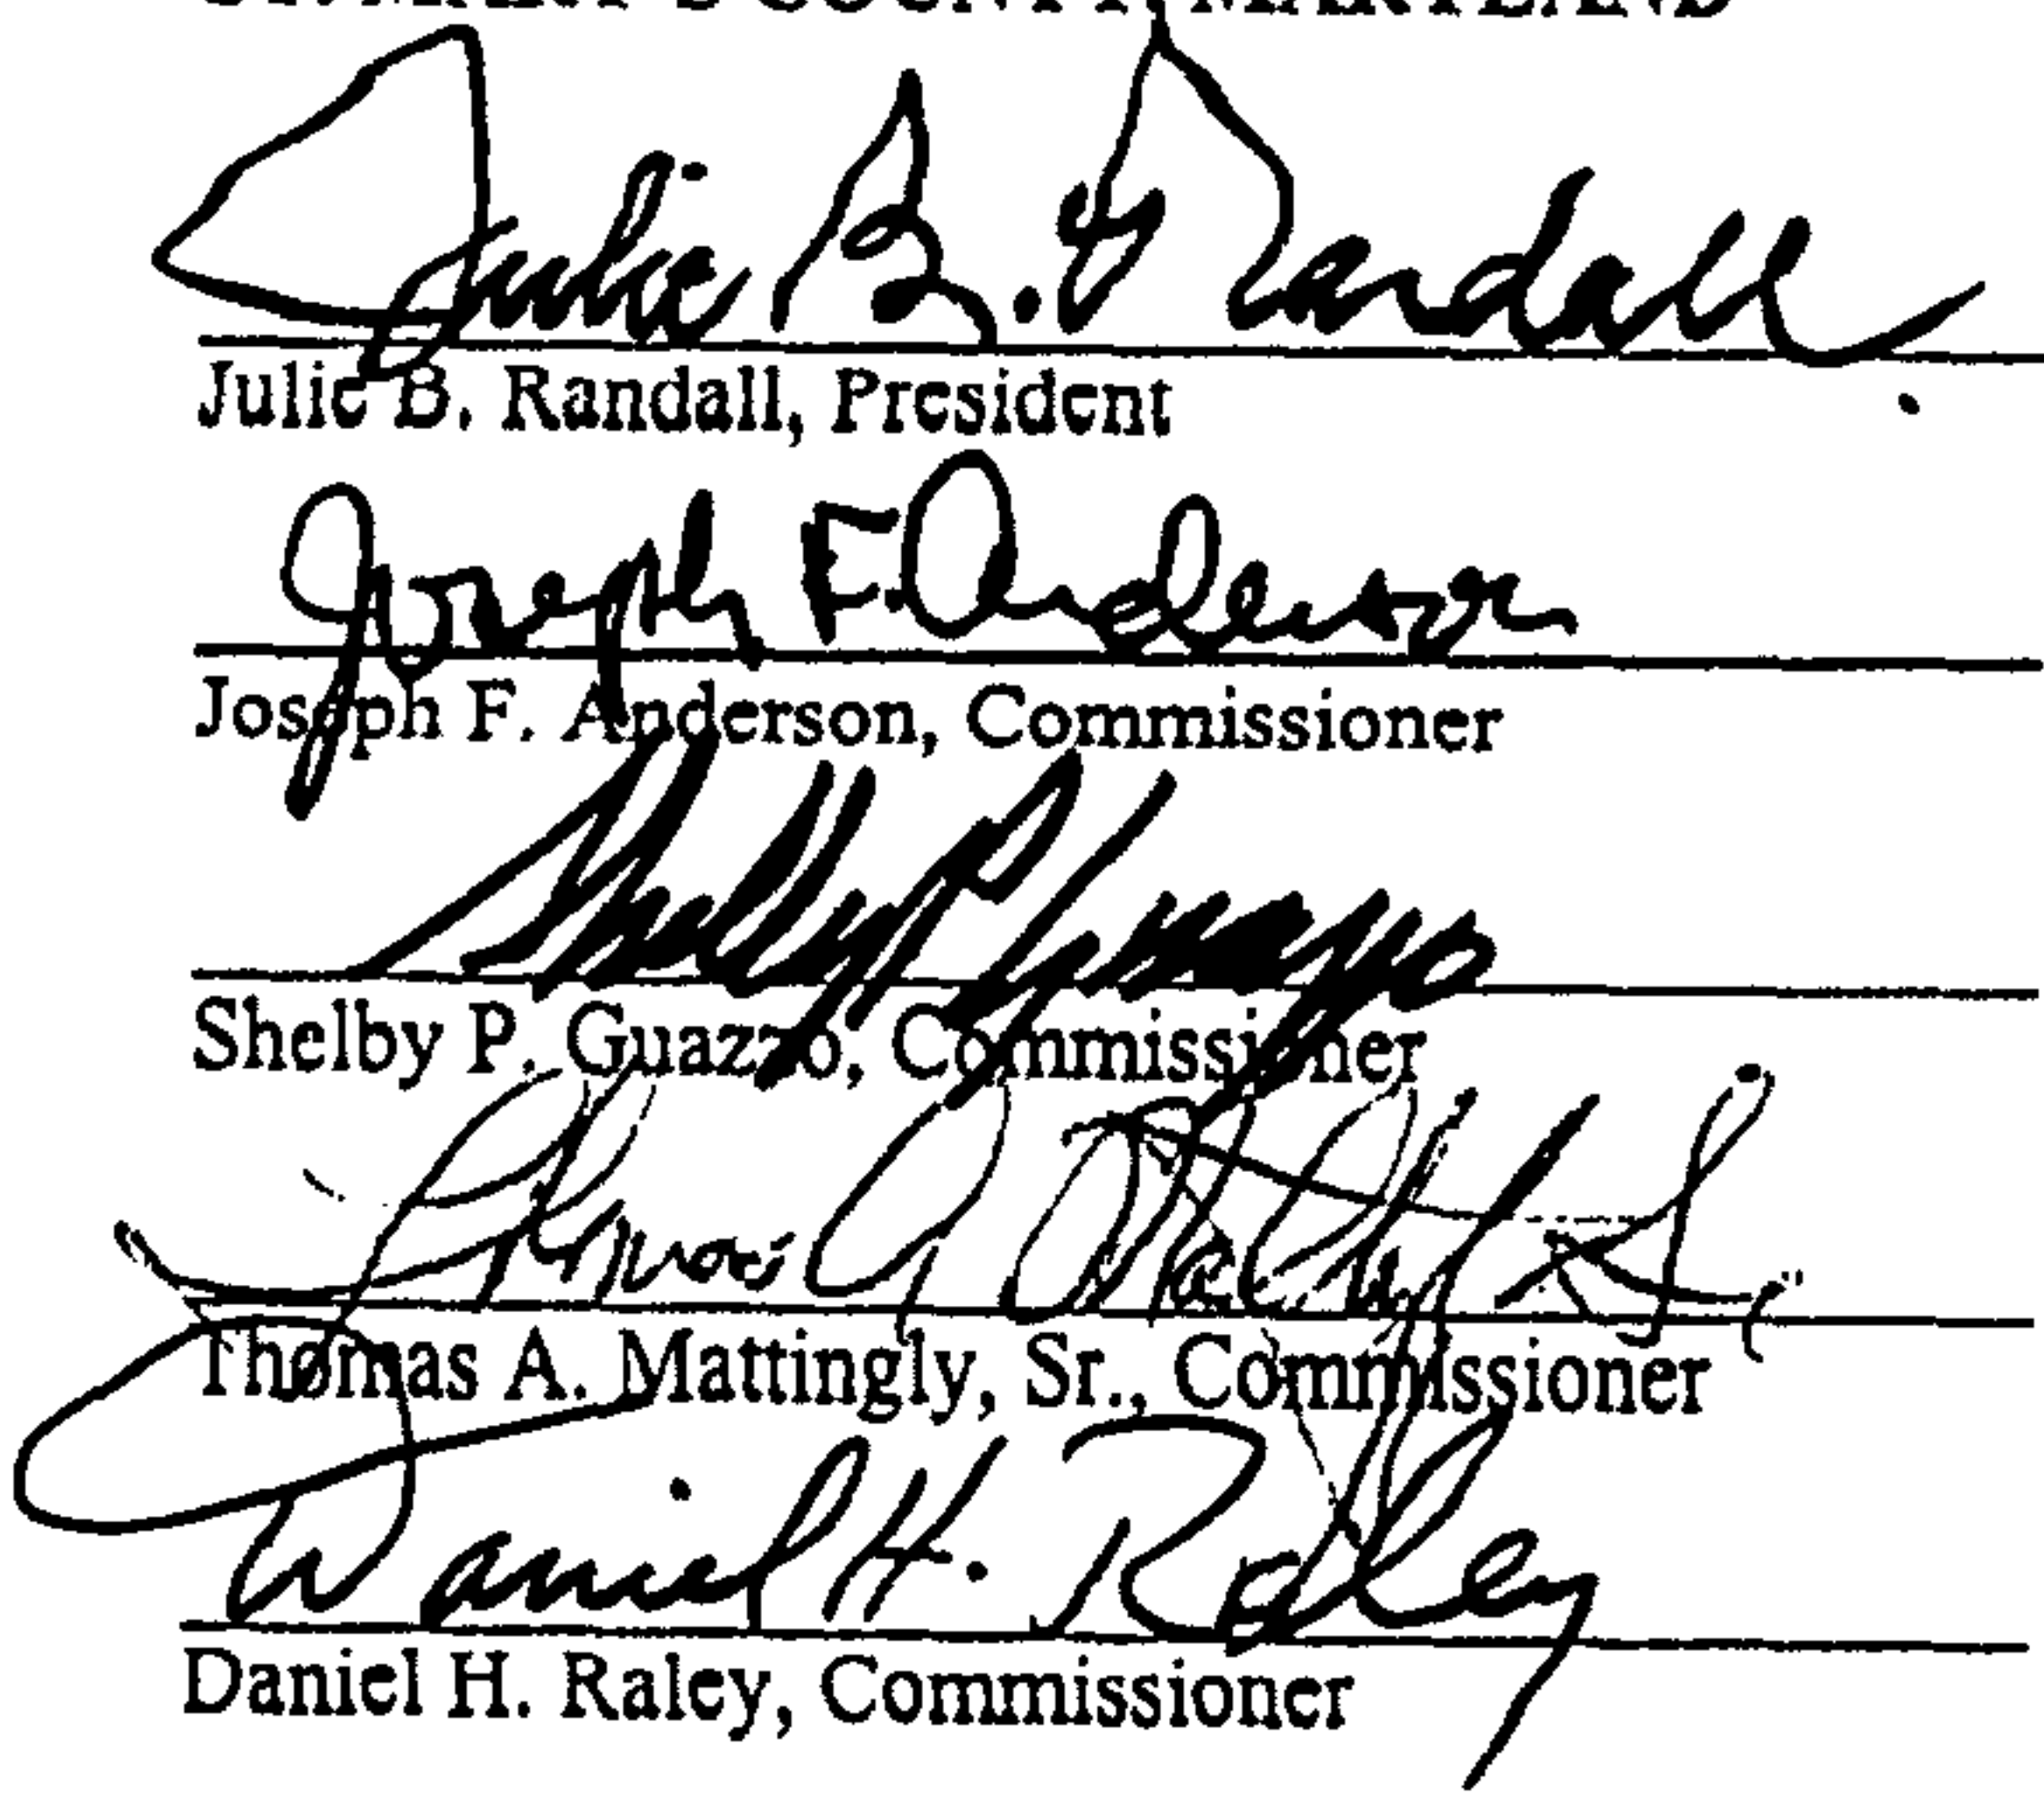 ST. MARY'S COUNTY, MARYLAND
Julie B. Randall
Julie B. Randall, President
Joseph F. Anderson
Joseph F. Anderson, Commissioner
Shelby P. Guazzo
Shelby P. Guazzo, Commissioner
Thomas A. Mattingly Sr.
Thomas A. Mattingly, Sr., Commissioner
Daniel H. Raley
Daniel H. Raley, Commissioner